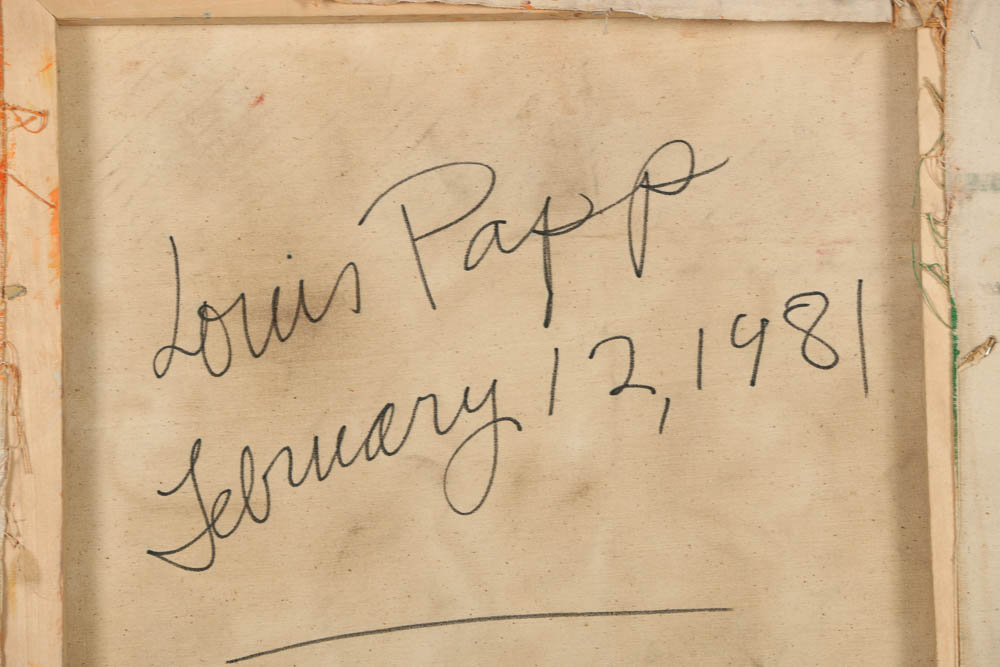 Louis Papp
February 12, 1981